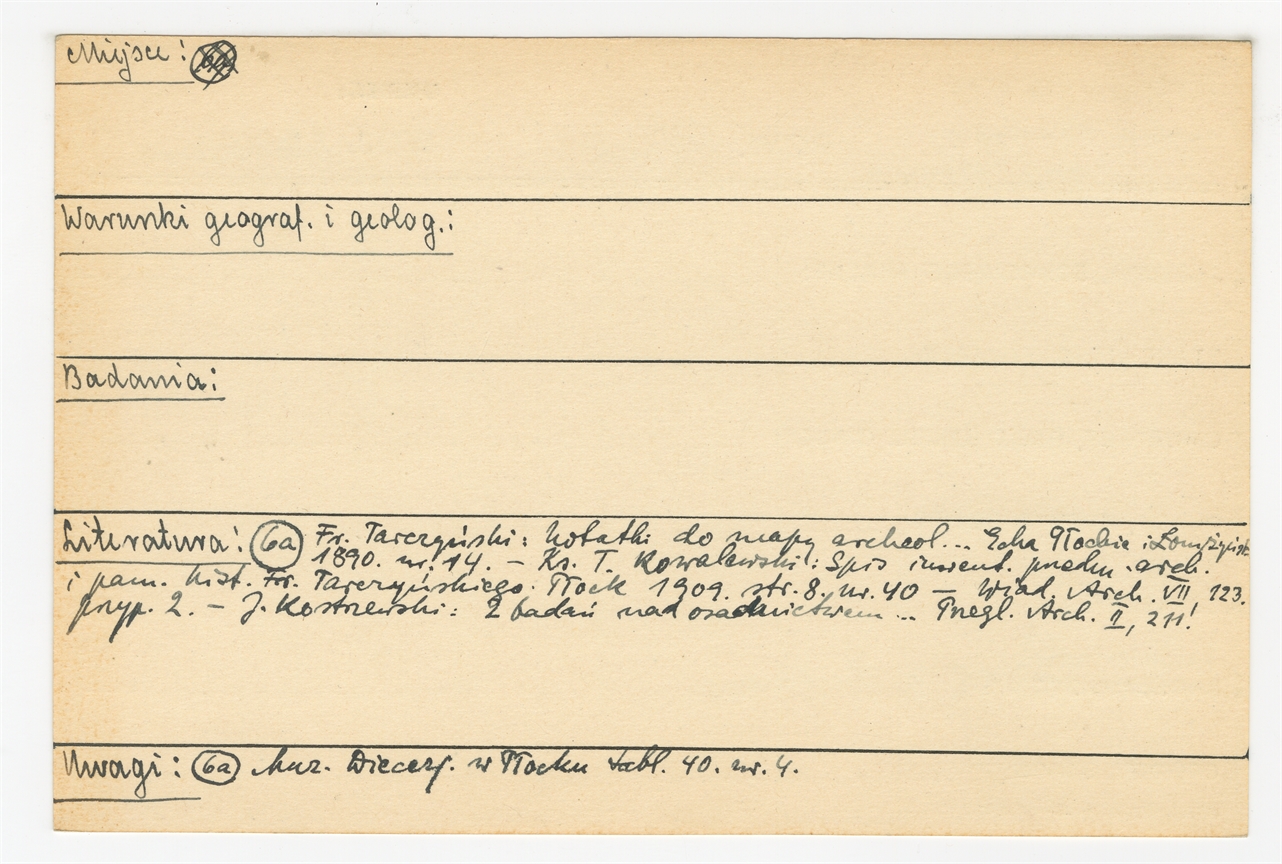 Miejsce:
Warunki geograf. i geolog.:
Badania:
Literatura: (6a) Fr. Tarczyński: Notatki do mapy archeol... Echa Płockie i Łomżyńsk.
1890. nr. 14. – Ks. T. Kowalewski: Spis inwent. przedm. arch.
i pam. hist. Fr. Tarczyńskiego. Płock 1909. str. 8. nr. 40 – Wiad. Arch. VII, 123.
przyp. 2. – J. Kostrzewski: Z badań nad osadnictwem... Przegl. Arch. II, 211!
Uwagi: (6a) Muz. Diecezj. w Płocku tabl. 40. nr. 4.